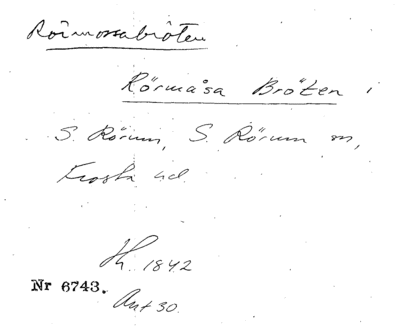 Rörmossabröten
Rörmåsa Bröten i
S. Rörum, S. Rörum sn,
Frosta hd
Hh. 1842
Nr 6743.
Ant 30.